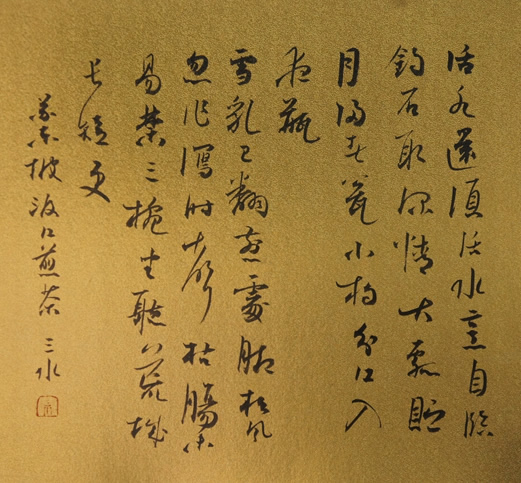 活火還須活水烹自臨
釣石取深情大瓢貯
月歸春甕小杓分江入
夜瓶
雪乳已翻煎處脚松風
忽作瀉時聲枯腸未
易禁三椀坐聽荒城
長短更
蘇東坡汲江煎茶 三水